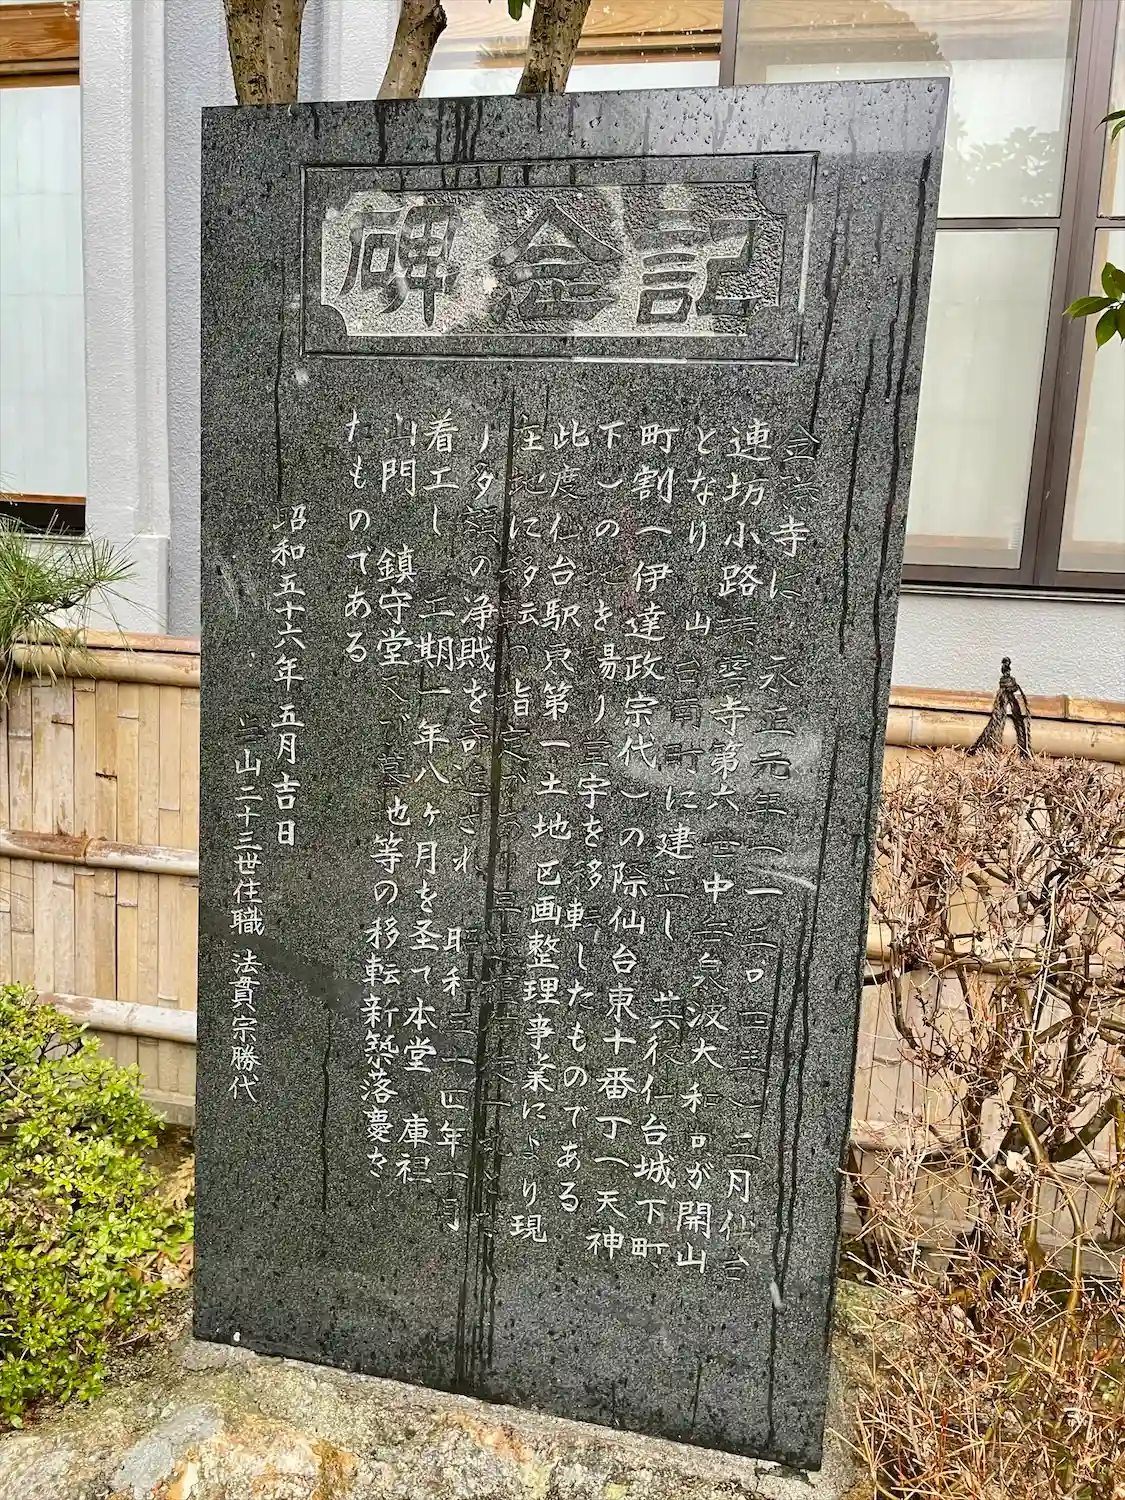 記念碑
寺に 永正元年（一五〇四年）二月仙台
連坊小路 雲寺第六世中 良波大和 が開山
となり 山 南町に建立し 其後仁台城下町
町割（伊達政宗代）の除仙台東十番丁（天神
下）の地を賜り堂宇を移転したものである
此度仙台駅東第一土地区画整理事業により現
在地に移転の指定
り多額の浄財を寄進され 昭和 四年一月
着工し 工期一年八ヶ月を圣て本堂 庫裡
山門 鎮守堂 墓地等の移転新築落慶を
たものである
昭和五十六年五月吉日
当山二十三世住職 法貫宗勝代